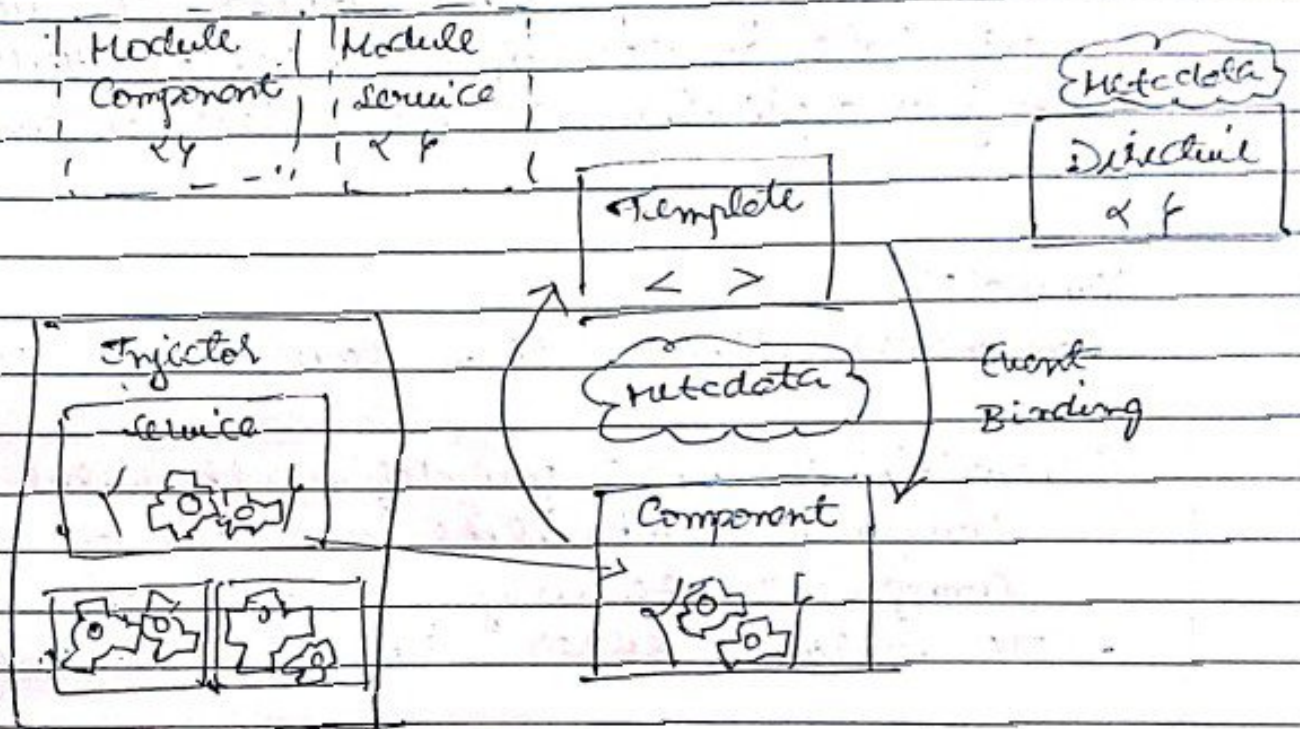 Module
Component
Module
Service
Metadata
Directive
Template
< >
Injector
Service
Metadata
Event
Binding
Component